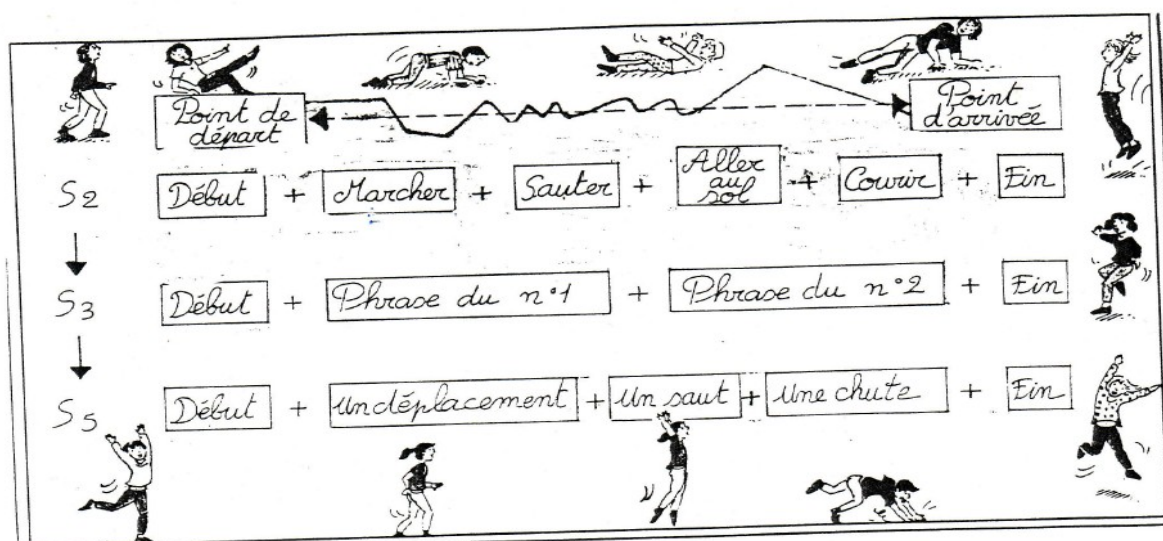 Point de
départ
Point
d'arrivée
S2 Début + Marcher + Sauter + Aller
au
sol + Courir + Fin
S3 Début + Phrase du n°1 + Phrase du n°2 + Fin
S5 Début + Un déplacement + Un saut + Une chute + Fin